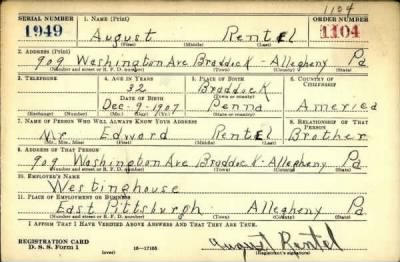 1104
SERIAL NUMBER 1. NAME (Print) ORDER NUMBER
1949 August Rentel 1104
(First) (Middle) (Last)
2. ADDRESS (Print)
909 Washington Ave Braddock - Allegheny Pa
(Number and street or R. F. D. number) (Town) (County) (State)
3. TELEPHONE 4. AGE IN YEARS 5. PLACE OF BIRTH 6. COUNTRY OF CITIZENSHIP
32 Braddock
DATE OF BIRTH (Town or county)
Dec - 9 - 1907 Penna America
(Exchange) (Number) (Mo.) (Day) (Yr.) (State or country)
7. NAME OF PERSON WHO WILL ALWAYS KNOW YOUR ADDRESS 8. RELATIONSHIP OF THAT PERSON
Mr. Edward Rentel Brother
(Mr., Mrs., Miss) (First) (Middle) (Last)
9. ADDRESS OF THAT PERSON
909 Washington Ave Braddock - Allegheny Pa
(Number and street or R. F. D. number) (Town) (County) (State)
10. EMPLOYER'S NAME
Westinghouse
11. PLACE OF EMPLOYMENT OR BUSINESS
East Pittsburgh Allegheny Pa
(Number and street or R. F. D. number) (Town) (County) (State)
I AFFIRM THAT I HAVE VERIFIED ABOVE ANSWERS AND THAT THEY ARE TRUE.
REGISTRATION CARD
D. S. S. Form 1 (over) 16-17105 August Rentel
(Registrant's signature)